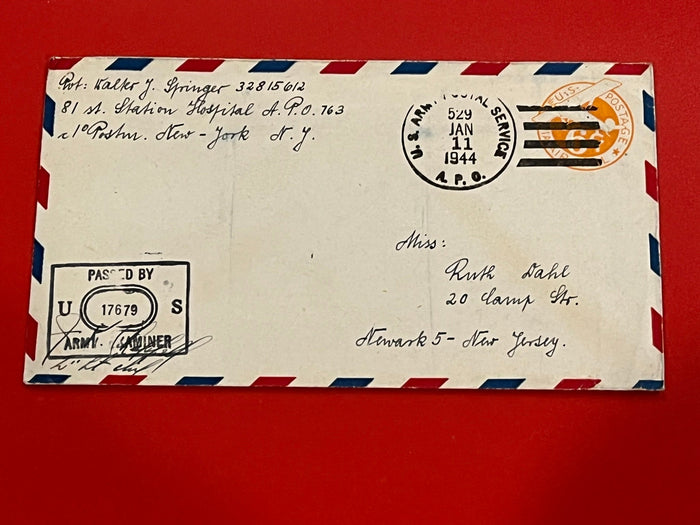 Pvt: Walter J. Springer 32815612
81 st. Station Hospital A.P.O. 763
c/o Postm. New-York N.Y.
U.S. ARMY POSTAL SERVICE
529
JAN
11
1944
A.P.O.
U.S. POSTAGE
AIR MAIL
6c
Miss:
Ruth Dahl
20 Camp Str.
Newark 5 - New Jersey.
PASSED BY
U 17679 S
ARMY EXAMINER